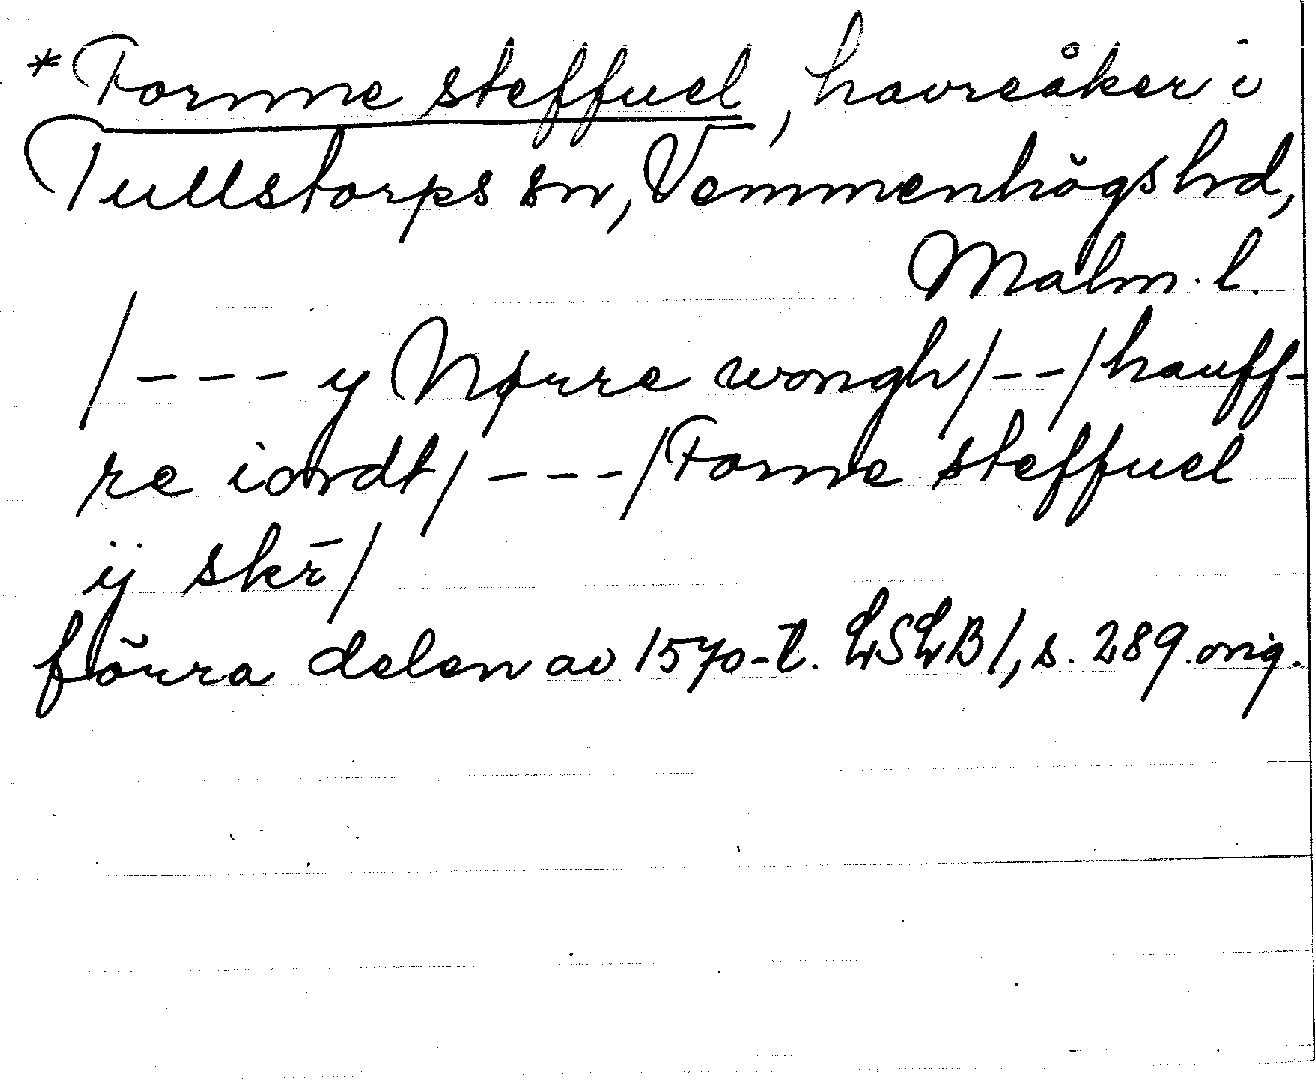 *Tornne steffuel, havreåker i
Tullstorps sn, Vemmenhögs hd,
Malm. l.
/--- y Nørre wongh/--/hauff-
re iordt/---/Torne steffuel
ij skr̄/
förra delen av 1570-t. LSLB1, s. 289. orig.